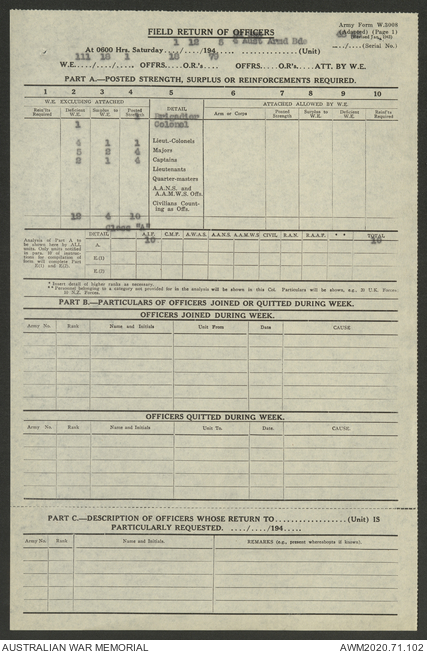 Army Form W.3008
(Adapted) (Page 1)
FIELD RETURN OF OFFICERS
(Revised Jan., 1943)
1 12 5 4 Aust Armd Bde
At 0600 Hrs. Saturday....../....../194......(Unit)
..../....(Serial No.)
111 10 1 10 79
W.E...../...../..... OFFRS..... O.R's..... OFFRS..... O.R's.....ATT. BY W.E.
PART A.—POSTED STRENGTH, SURPLUS OR REINFORCEMENTS REQUIRED.
1 2 3 4 5 6 7 8 9 10
W.E. EXCLUDING ATTACHED
ATTACHED ALLOWED BY W.E.
Reinf'ts Required
Deficit to W.E.
Surplus to W.E.
Posted Strength
DETAIL
Arm or Corps
Posted Strength
Surplus to W.E.
Deficit to W.E.
Reinf'ts Required
Brigadier
1 Colonel
4 1 1 Lieut.-Colonels
5 2 4 Majors
2 1 4 Captains
Lieutenants
Quarter-masters
A.A.N.S. and
A.A.M.W.S. Offs.
Civilians Count-
ing as Offs.
12 4 10
Class "A"
DETAIL A.I.F. C.M.F. A.W.A.S. A.A.N.S. A.A.M.W.S. CIVIL R.A.N. R.A.A.F. * * TOTAL
10 10
Analysis of Part A to
be shown here by ALL
units. Only units notified
to
for compilation of
form will complete Parts
E(1) and E(2).
A.
E.(1)
E.(2)
* Insert detail of higher ranks as necessary.
** Personnel belonging to a category not provided for in the analysis will be shown in this Col. Particulars will be shown, e.g., 10 U.K. Forces
10 N.Z. Forces.
PART B.—PARTICULARS OF OFFICERS JOINED OR QUITTED DURING WEEK.
OFFICERS JOINED DURING WEEK.
Army No. Rank Name and Initials Unit From Date CAUSE.
OFFICERS QUITTED DURING WEEK.
Army No. Rank Name and Initials Unit To. Date. CAUSE.
PART C.—DESCRIPTION OF OFFICERS WHOSE RETURN TO..................(Unit) IS
PARTICULARLY REQUESTED. ..../..../194.....
Army No. Rank Name and Initials. REMARKS (e.g., present whereabouts if known).
AUSTRALIAN WAR MEMORIAL
AWM2020.71.102